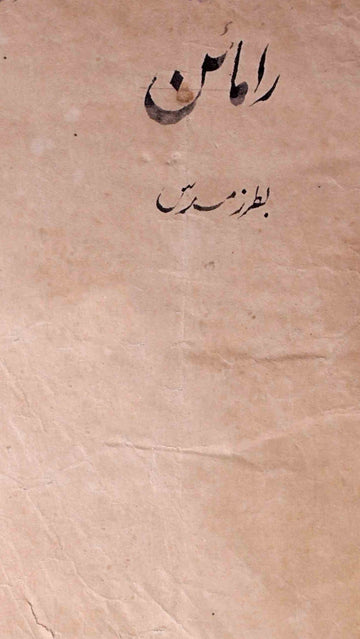 رامائن
بطرز مسدس